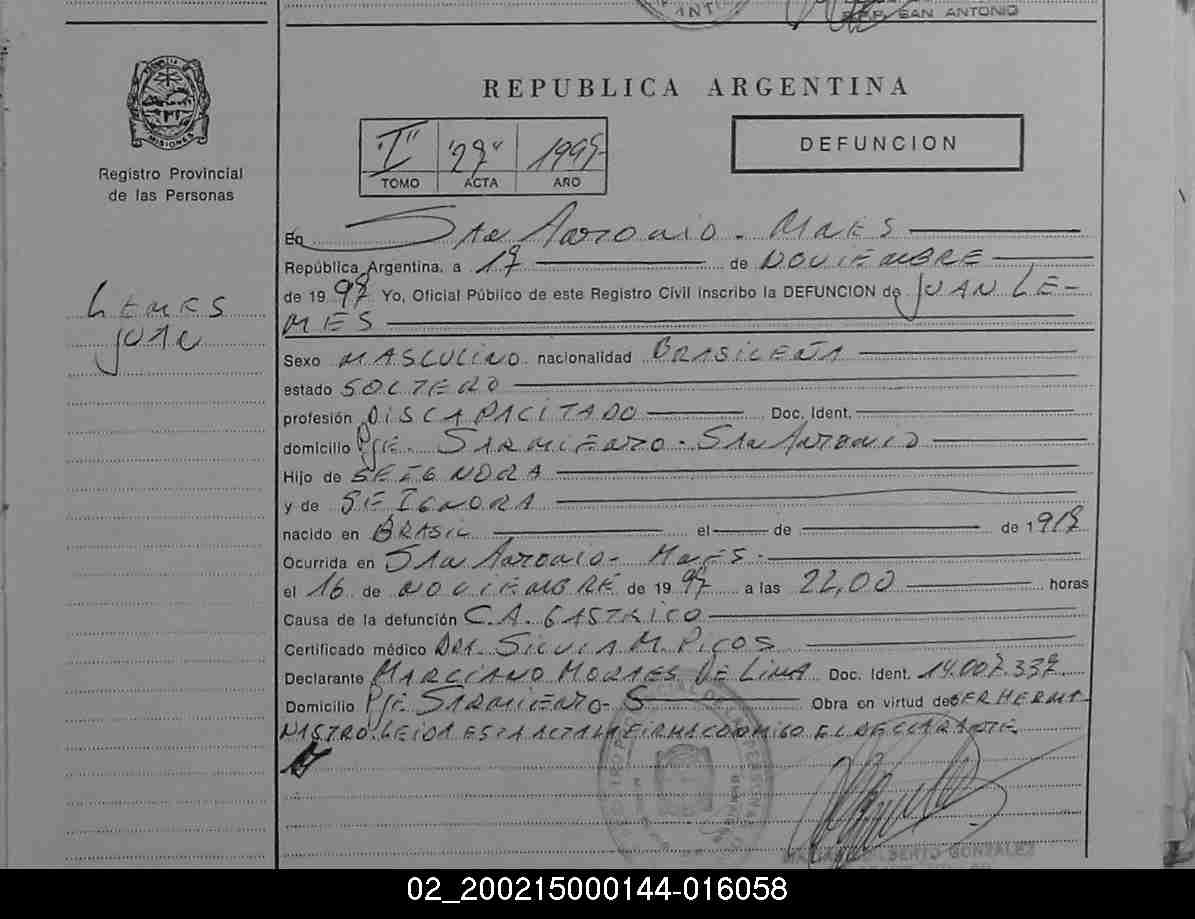 ANTO
R.P.P. SAN ANTONIO
MISIONES
Registro Provincial
de las Personas
REPUBLICA ARGENTINA
"I" "27" 1997-
TOMO ACTA AÑO
DEFUNCION
LEMES
JUAN
En San Antonio - Mnes
República Argentina, a 17 de NOVIEMBRE
de 1997 Yo, Oficial Público de este Registro Civil inscribo la DEFUNCION de JUAN LE-
MES
Sexo MASCULINO nacionalidad BRASILEÑA
estado SOLTERO
profesión DISCAPACITADO Doc. Ident.
domicilio Pje. SARMIENTO - San Antonio
Hijo de SE IGNORA
y de SE IGNORA
nacido en BRASIL el de de 1917
Ocurrida en San Antonio - Mnes -
el 16 de NOVIEMBRE de 1997 a las 22,00 horas
Causa de la defunción C.A. GASTRICO
Certificado médico DRA. SILVIA M. PICOS
Declarante MARCIANO MORAES DE LIMA Doc. Ident. 14.007.337
Domicilio Pje SARMIENTO - S Obra en virtud de SER HERMA
NASTRO. LEIDA ESTA ACTA LA FIRMA CONMIGO EL DECLARANTE
GONZALEZ
02_200215000144-016058